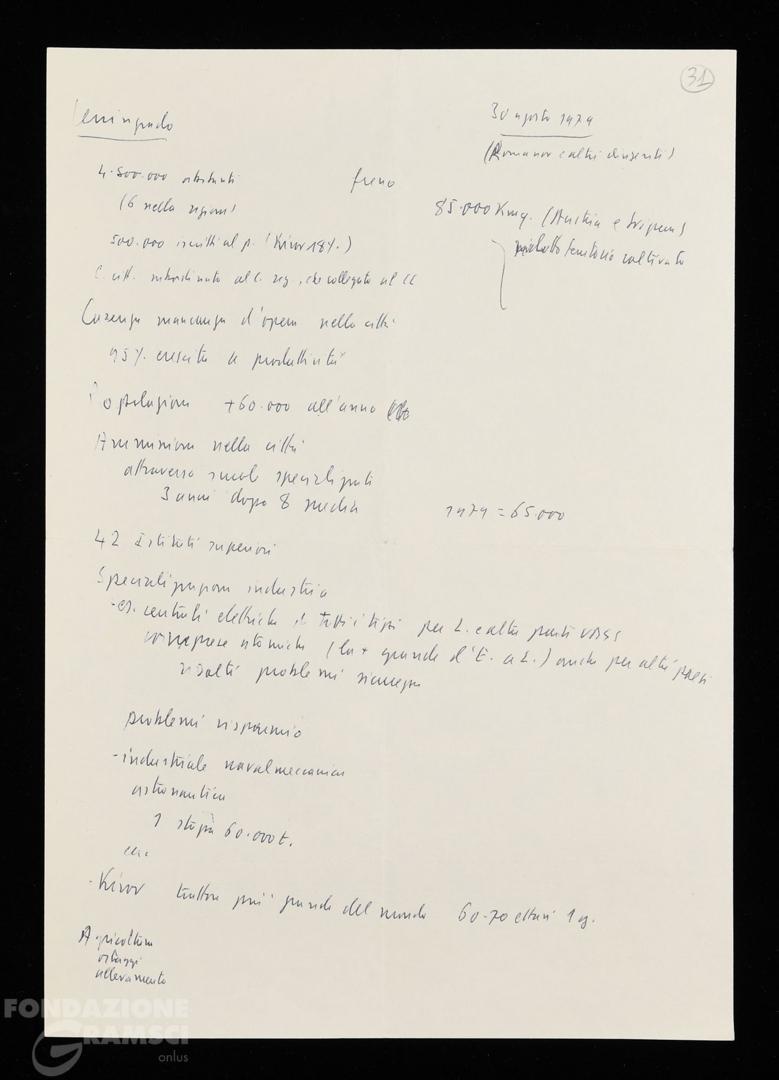 31
Leningrado
30 agosto 1979
(Romanov e altri dirigenti)
4.500.000 abitanti
freno
(6 nella regione)
85.000 Kmq. (Austria e
500.000 iscritti al p. (Kirov 18%.)
ridotto territorio coltivato
C. citt. subordinato al C. reg., che collegato al CC
Carenza mancanza d'opera nella città
95%. crescita a produttività
Popolazione +60.000 all'anno
Ammissione nella città
attraverso scuole specializzati
3 anni dopo 8 media
1979 = 65.000
42 Istituti superiori
Specializzazione industria
- es. centrali elettriche di tutti i tipi per L. e altre parti URSS
comprese atomiche (la + grande d'E. a L.) anche per altri paesi
risolti problemi sicurezza
problemi risparmio
- industriale navalmeccanica
astronautica
60.000 t.
ecc.
- Kirov trattore più grande del mondo 60-70 ettari 1 g.
Agricoltura
ortaggi
allevamento
FONDAZIONE
GRAMSCI
onlus